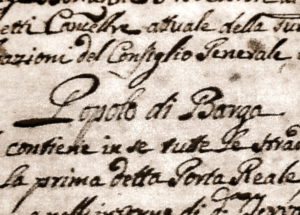 etti Cancell.re attuale della sud
azioni del Consiglio Generale
Popolo di Barga
contiene in se tutte le strad
La prima detta Porta Reale